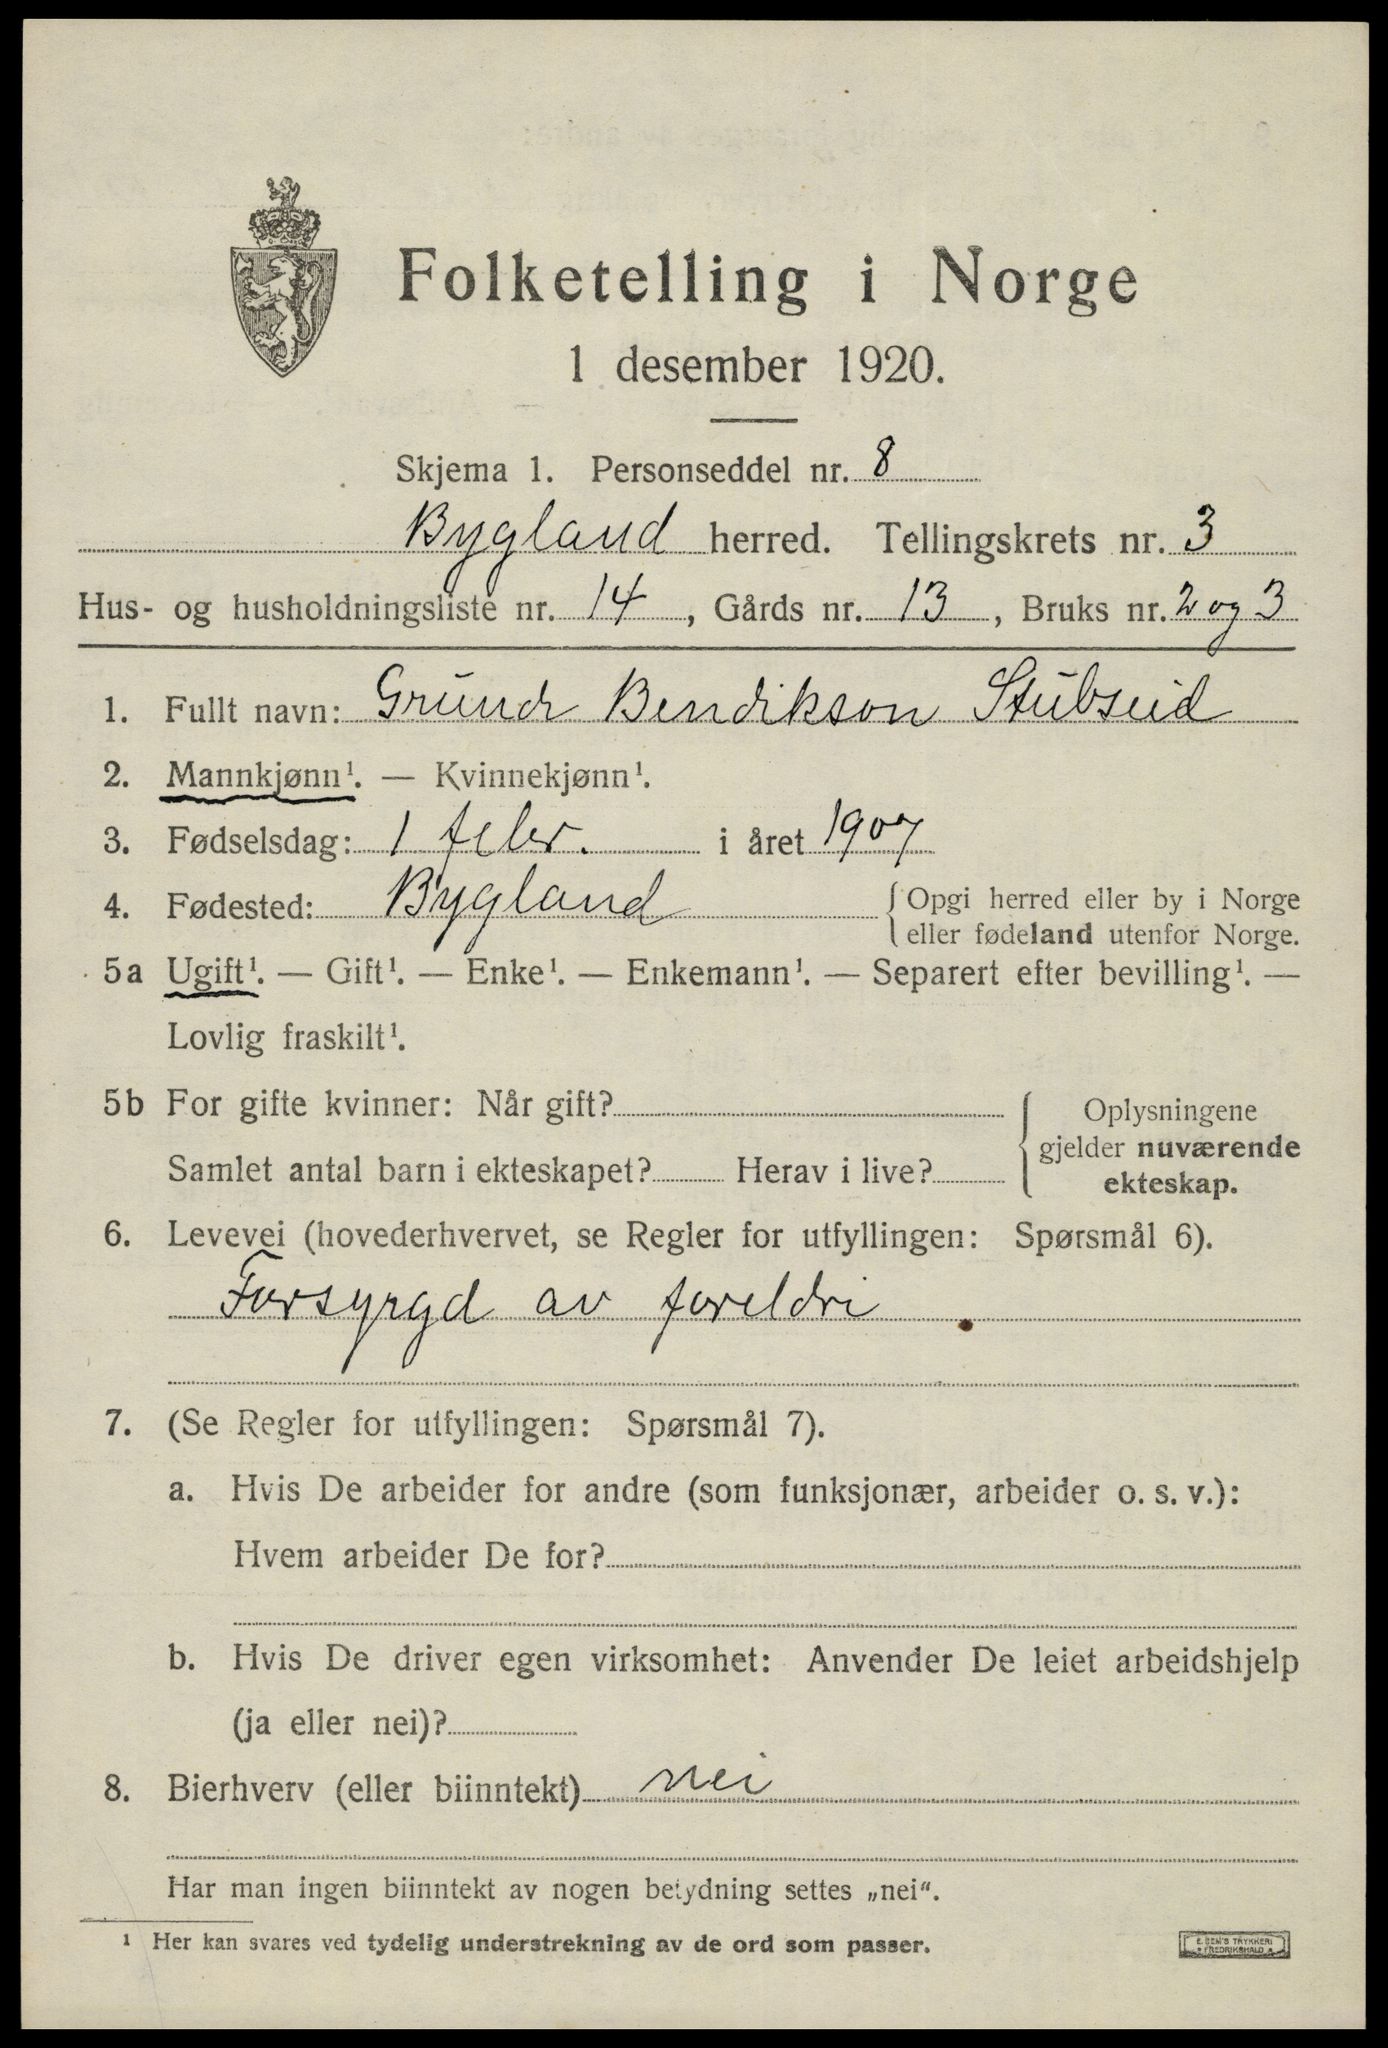 Folketelling i Norge
1 desember 1920.
Skjema 1. Personseddel nr. 8
Bygland herred. Tellingskrets nr. 3
Hus- og husholdningsliste nr. 14, Gårds nr. 13, Bruks nr. 2 og 3
1. Fullt navn: Bendikson Stubseid
2. Mannkjønn¹. — Kvinnekjønn¹.
3. Fødselsdag: 1 febr. i året 1907
4. Fødested: Bygland {Opgi herred eller by i Norge
eller fødeland utenfor Norge.
5a Ugift¹. — Gift¹. — Enke¹. — Enkemann¹. — Separert efter bevilling¹. —
Lovlig fraskilt¹.
5b For gifte kvinner: Når gift? { Oplysningene
gjelder nuværende
Samlet antal barn i ekteskapet? Herav i live? ekteskap.
6. Levevei (hovederhvervet, se Regler for utfyllingen: Spørsmål 6).
Forsyrgd av foreldri
7. (Se Regler for utfyllingen: Spørsmål 7).
a. Hvis De arbeider for andre (som funksjonær, arbeider o. s. v.):
Hvem arbeider De for?
b. Hvis De driver egen virksomhet: Anvender De leiet arbeidshjelp
(ja eller nei)?
8. Bierhverv (eller biinntekt) nei
Har man ingen biinntekt av nogen betydning settes „nei“.
¹ Her kan svares ved tydelig understrekning av de ord som passer.
E. SEM'S TRYKKERI
FREDRIKSHALD